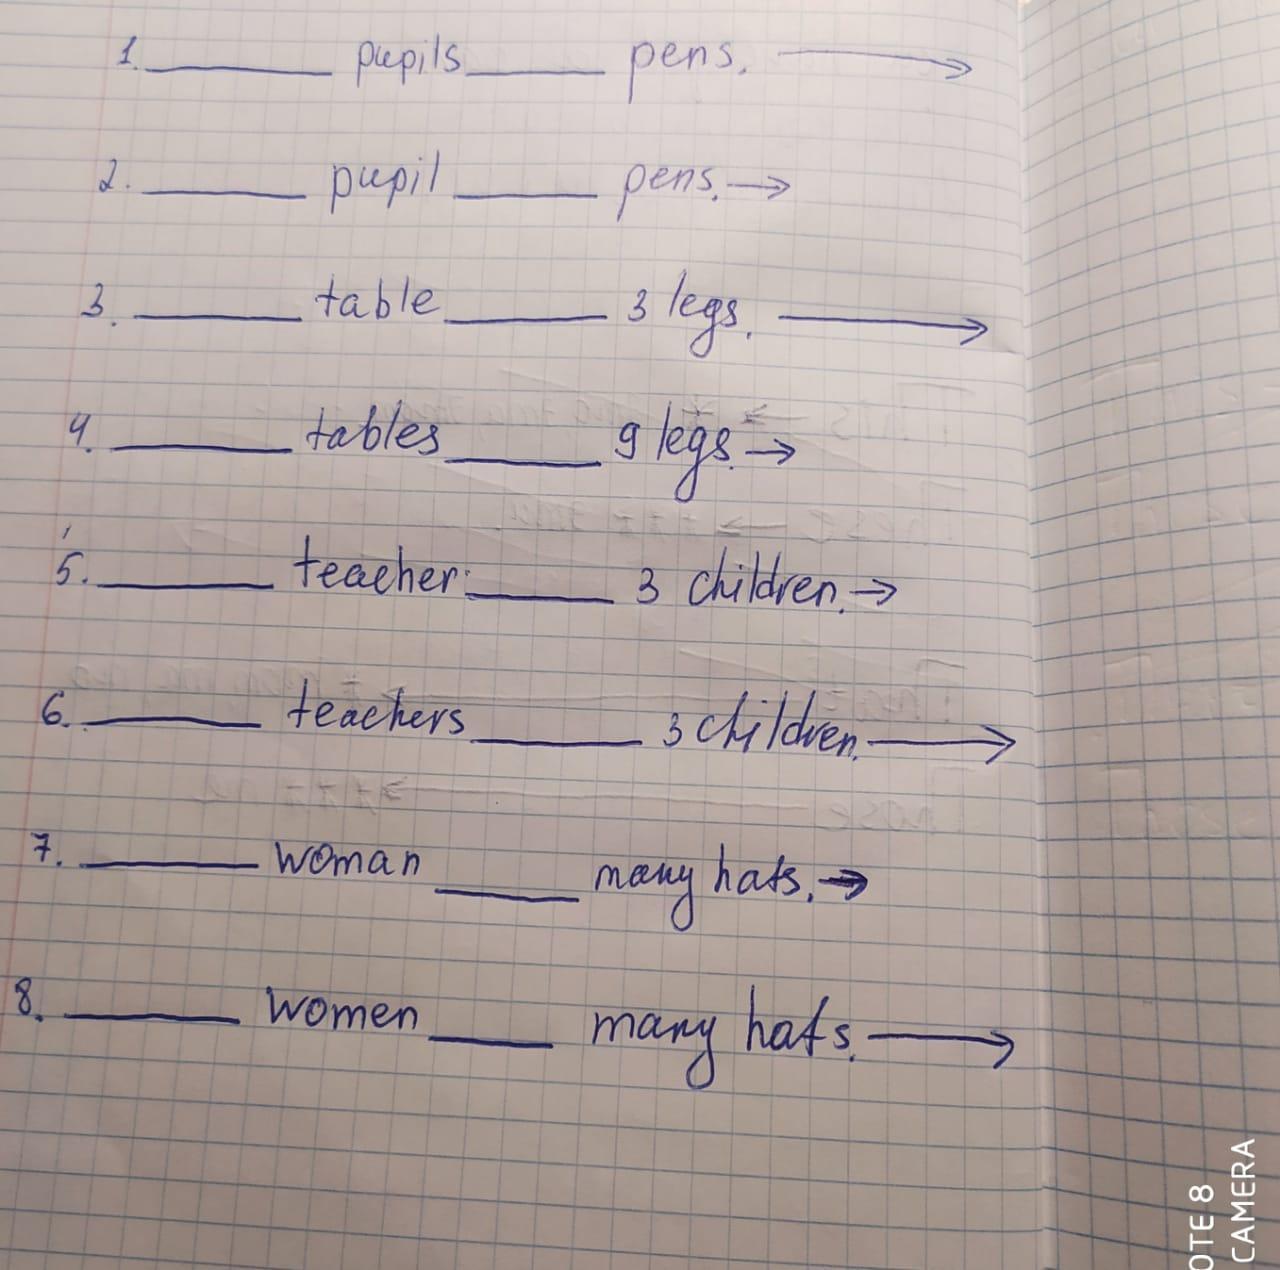 1. ______ pupils ______ pens. ⟶
2. ______ pupil ______ pens. →
3. ______ table ______ 3 legs. ⟶
4. ______ tables ______ 9 legs. →
5. ______ teacher ______ 3 children. →
6. ______ teachers ______ 3 children. ⟶
7. ______ woman ______ many hats. →
8. ______ women ______ many hats. ⟶
OTE 8
CAMERA